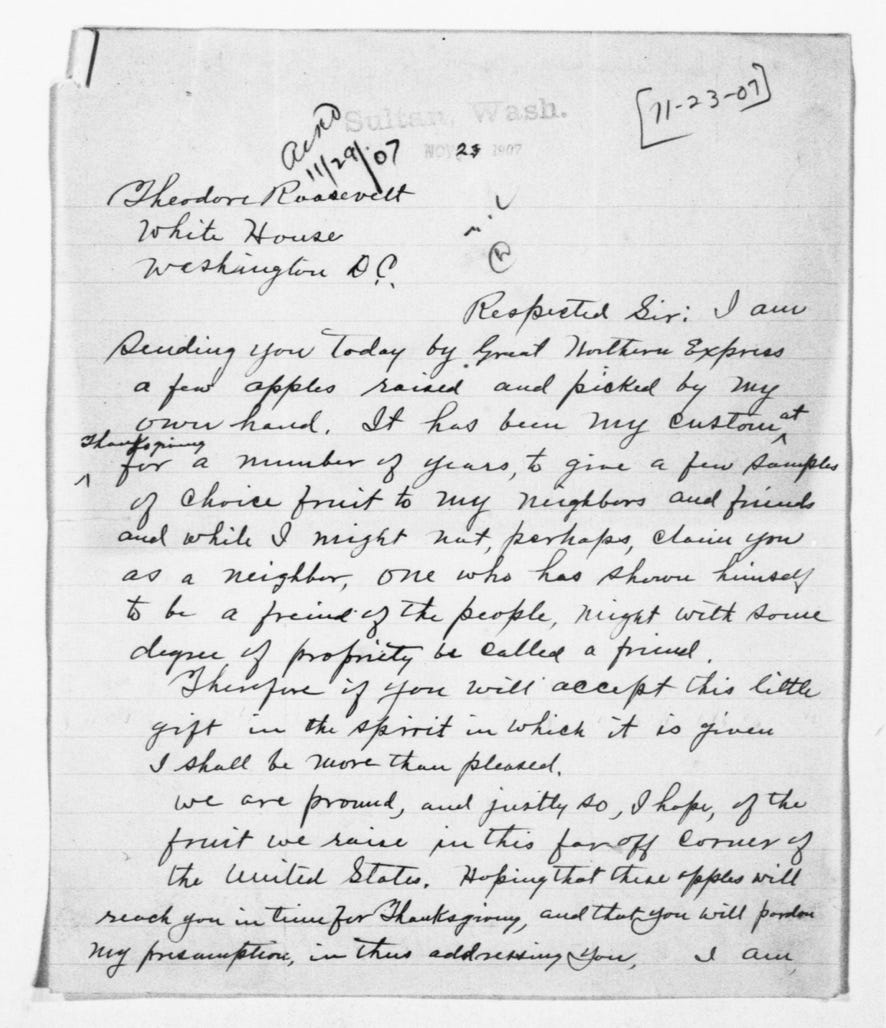 [11-23-07]
Sultan, Wash.
NOV 23 1907
Ackd
11/29/07
Theodore Roosevelt
White House
Washington D.C.
Respected Sir: I am
sending you today by Great Northern Express
a few apples raised and picked by my
own hand. It has been my custom at
Thanksgiving
for a number of years, to give a few samples
of choice fruit to my neighbors and friends
and while I might not, perhaps, claim you
as a neighbor, one who has shown himself
to be a freind of the people, might with some
degree of propriety be called a friend.
Therefore if you will accept this little
gift in the spirit in which it is given
I shall be more than pleased.
We are proud, and justly so, I hope, of the
fruit we raise in this far off corner of
the United States. Hoping that these apples will
reach you in time for Thanksgiving, and that you will pardon
my presumption, in thus addressing you, I am,